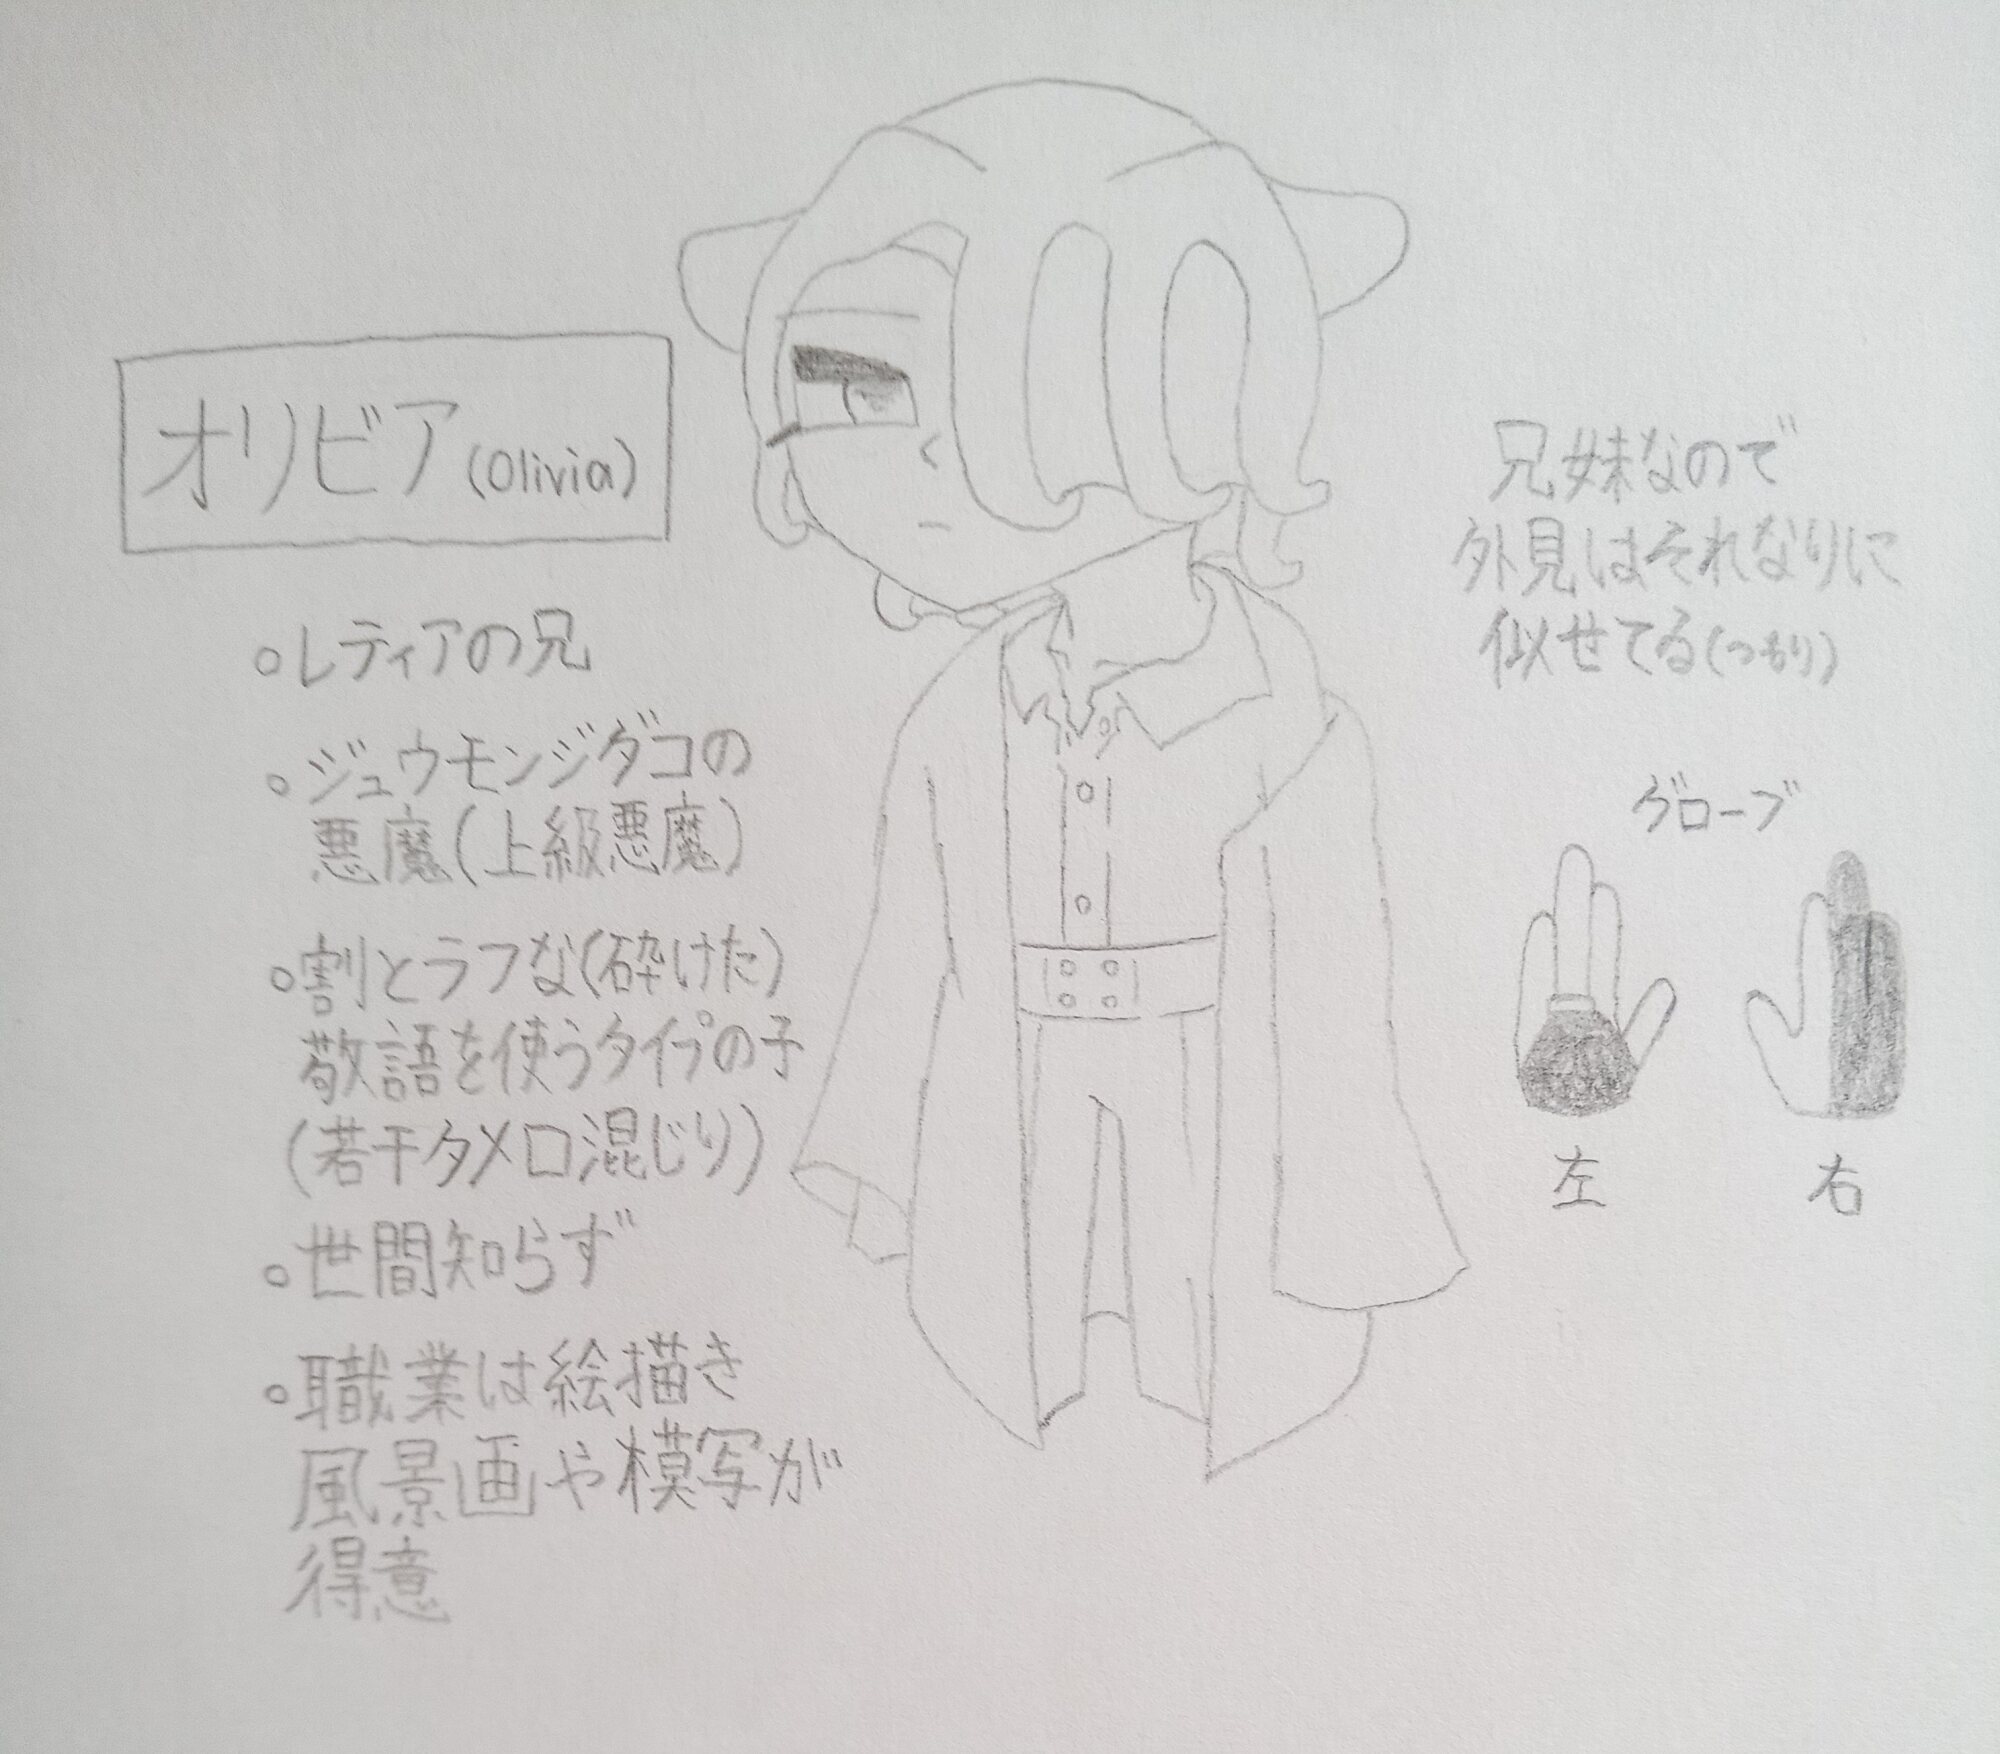 オリビア(Olivia)
○レティアの兄
○ジュウモンジダコの
悪魔(上級悪魔)
○割とラフな(砕けた)
敬語を使うタイプの子
(若干タメ口混じり)
○世間知らず
○職業は絵描き
風景画や模写が
得意
兄妹なので
外見はそれなりに
似せてる(つもり)
グローブ
左
右